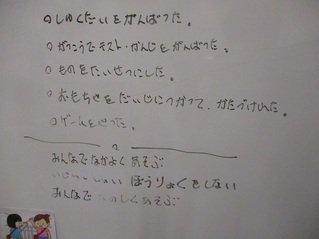 ○しゅくだいをがんばった。
○がっこうでテスト・かんじをがんばった。
○ものをたいせつにした。
○おもちゃをだいじにつかって、かたづけした。
○ゲームを
みんなでなかよくあそぶ
ぼうりょくをしない
みんなでたのしくあそぶ